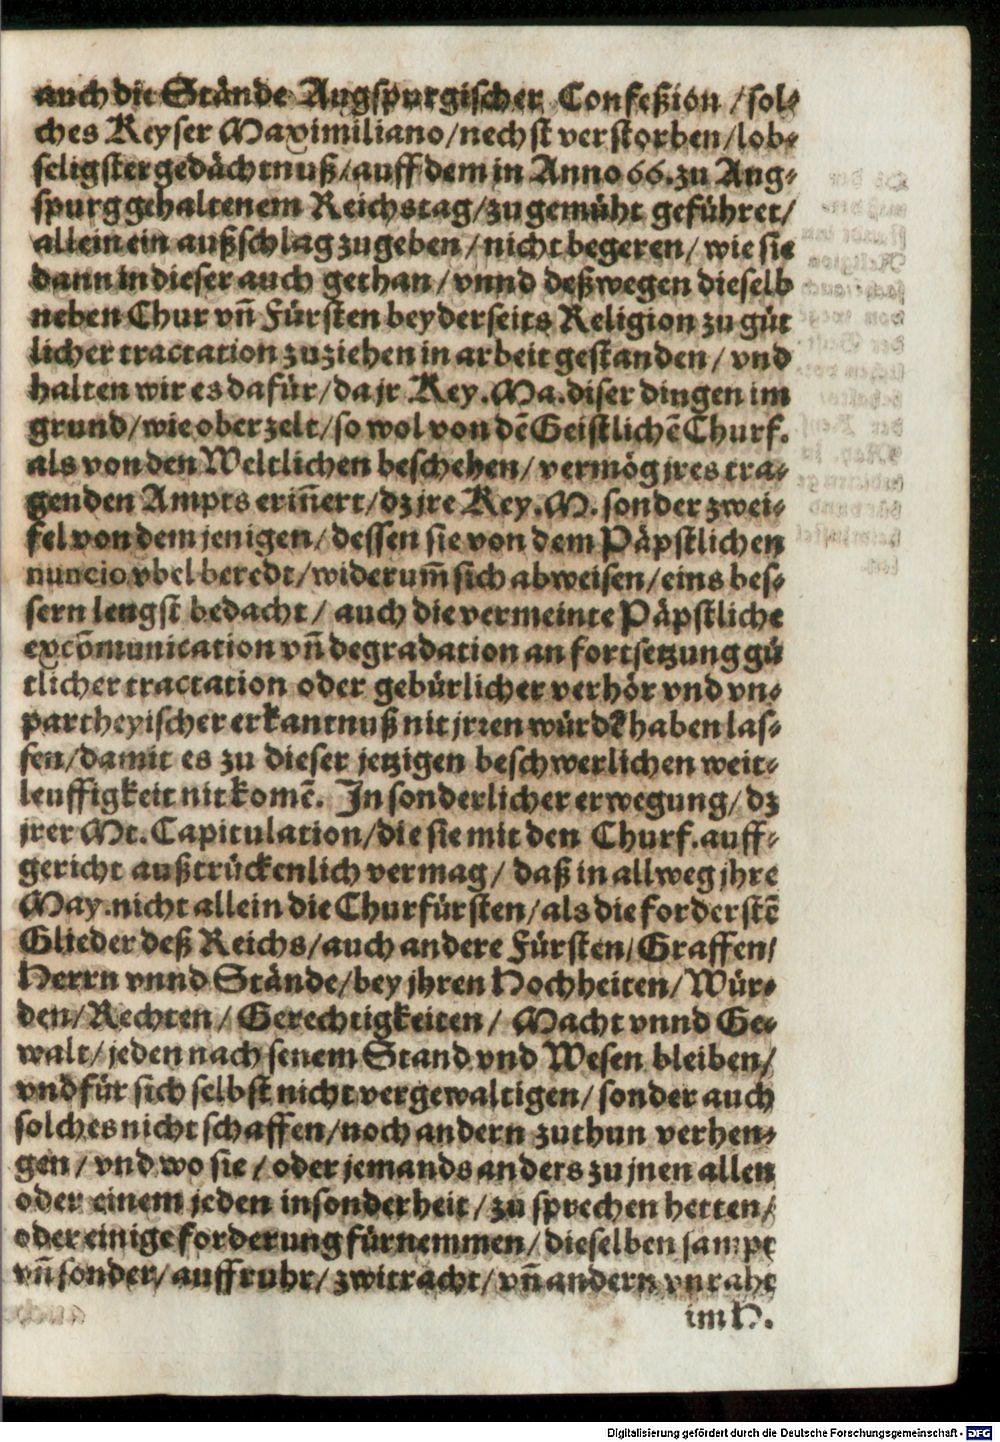 auch die Stände Augspurgischer Confeßion / sol-
ches Keyser Maximiliano/nechst verstorben/lob-
seligster gedächtnuß/auff dem in Anno 66. zu Aug-
spurg gehaltenem Reichstag/zu gemüht geführet/
allein ein außschlag zu geben/nicht begeren/ wie sie
dann in dieser auch gethan/vnnd deßwegen dieselb
neben Chur vn̄ Fürsten beyderseits Religion zu güt
licher tractation zuziehen in arbeit gestanden/ vnd
halten wir es dafür/da jr Key.Ma.diser dingen im
grund/wie oberzelt/so wol von dē Geistlichē Churf.
als von den Weltlichen beschehen/ vermög jres tra-
genden Ampts erin̄ert/dz jre Key.M. sonder zwei-
fel von dem jenigen/dessen sie von dem Päpstlichen
nuncio vbel beredt/widerum̄ sich abweisen/eins bes-
sern lengst bedacht/ auch die vermeinte Päpstliche
excōmunication vn̄ degradation an fortsetzung gü
tlicher tractation oder gebürlicher verhör vnd vn-
partheyischer erkantnuß nit jrren würdē haben las-
sen/damit es zu dieser jetzigen beschwerlichen weit-
leuffigkeit nit komē. In sonderlicher erwegung/dz
jrer Mt.Capitulation/die sie mit den Churf.auff-
gericht außtrückenlich vermag/ daß in allweg jhre
May.nicht allein die Churfürsten/als die forderstē
Glieder deß Reichs/auch andere Fürsten/Graffen/
Herrn vnnd Stände/bey jhren Hochheiten/Wür-
den/Rechten/Gerechtigkeiten/ Macht vnnd Ge-
walt/jeden nach senem Stand vnd Wesen bleiben/
vnd für sich selbst nicht vergewaltigen/sonder auch
solches nicht schaffen/noch andern zuthun verhen-
gen/vnd wo sie/oder jemands anders zu jnen allen
oder einem jeden insonderheit/zu sprechen hetten/
oder einige forderung fürnemmen/dieselben sampt
vn̄ sonder/auffruhr/zwitracht/vn̄ andern vnraht
im H.
Digitalisierung gefördert durch die Deutsche Forschungsgemeinschaft - DFG